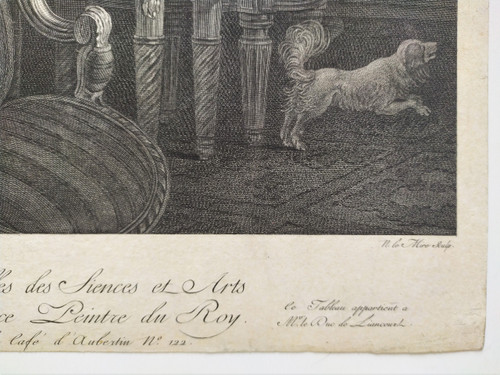 N. le Mire Sculp.
les des Siences et Arts
ce Peintre du Roy.
Café d'Aubertin No. 122.
Ce Tableau appartient a
Mr. le Duc de Liancourt.